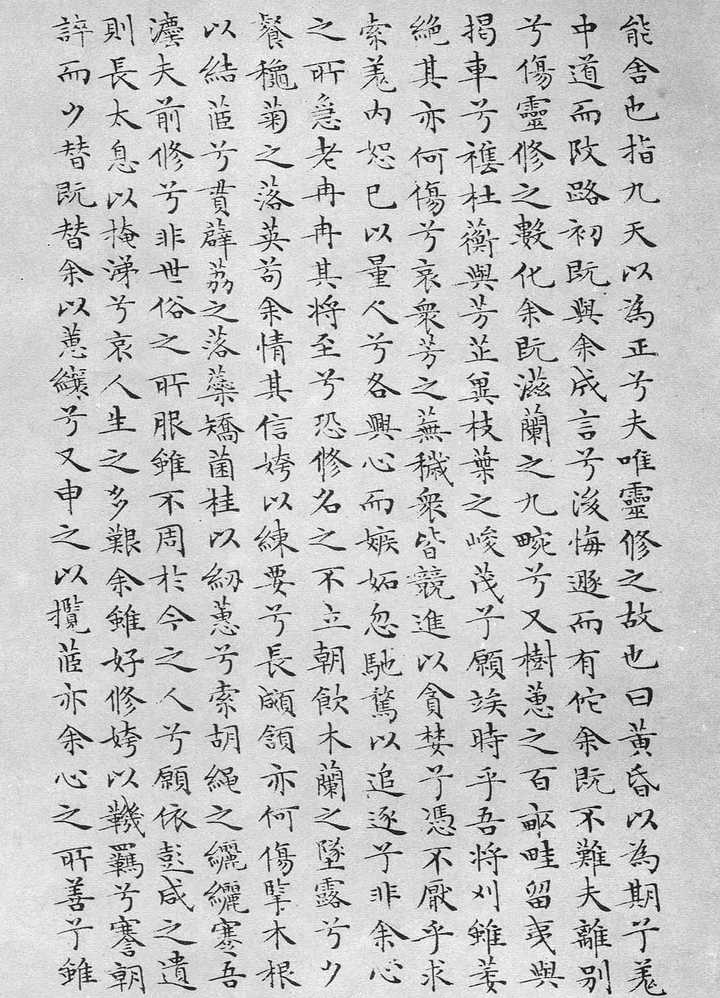 能舍也指九天以為正兮夫唯靈修之故也曰黃昏以為期兮羌
中道而改路初既與余成言兮後悔遯而有佗余既不難夫離別
兮傷靈修之數化余既滋蘭之九畹兮又樹蕙之百畝畦留夷與
揭車兮雜杜蘅與芳芷冀枝葉之峻茂兮願竢時乎吾將刈雖萎
絕其亦何傷兮哀衆芳之蕪穢衆皆競進以貪婪兮憑不厭乎求
索羌內恕己以量人兮各興心而嫉妬忽馳騖以追逐兮非余心
之所急老冉冉其將至兮恐修名之不立朝飲木蘭之墜露兮夕
餐秋菊之落英苟余情其信姱以練要兮長顑頷亦何傷擥木根
以結茝兮貫薜荔之落蘂矯菌桂以紉蕙兮索胡繩之纚纚謇吾
灋夫前修兮非世俗之所服雖不周於今之人兮願依彭咸之遺
則長太息以掩涕兮哀人生之多艱余雖好修姱以鞿羈兮謇朝
誶而夕替既替余以蕙纕兮又申之以攬茝亦余心之所善兮雖